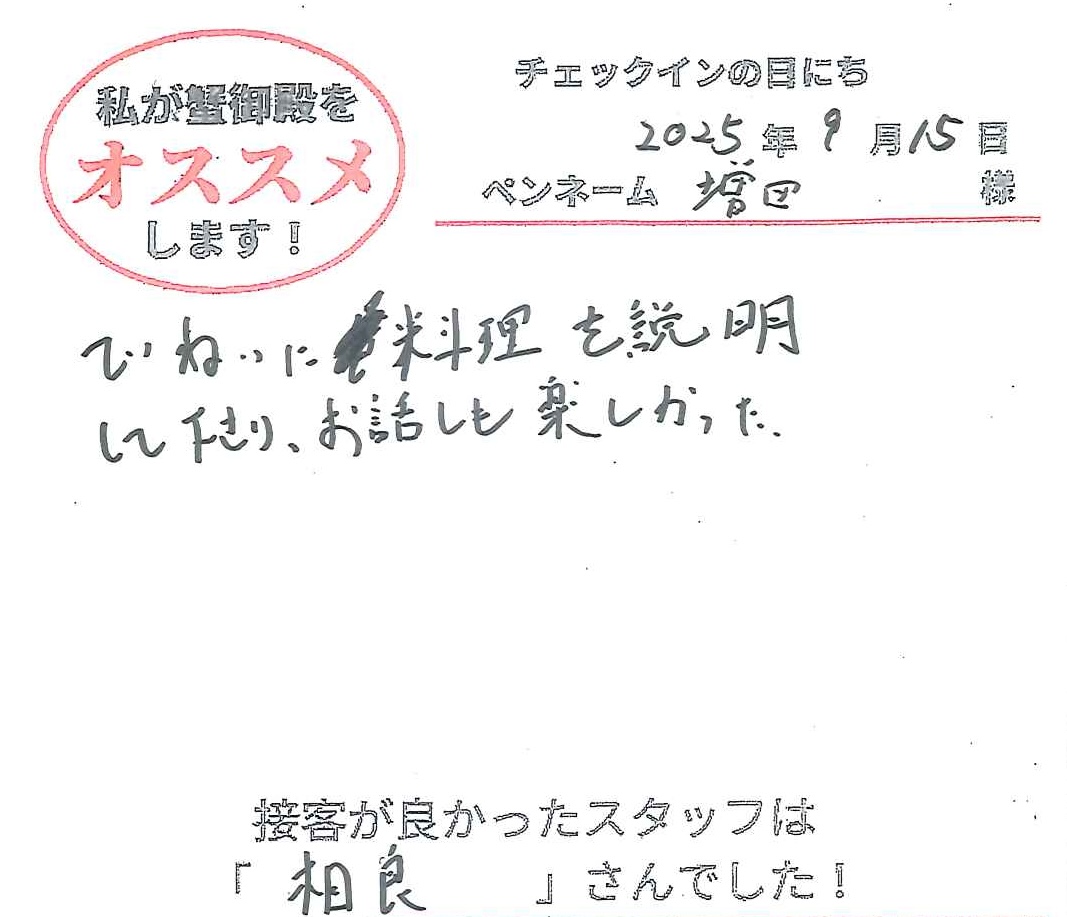 私が蟹御殿を
オススメ
します！
チェックインの日にち
2025年9月15日
ペンネーム 増田 様
ていねいに料理を説明
して下さり、お話しも楽しかった。
接客が良かったスタッフは
「相良」さんでした！